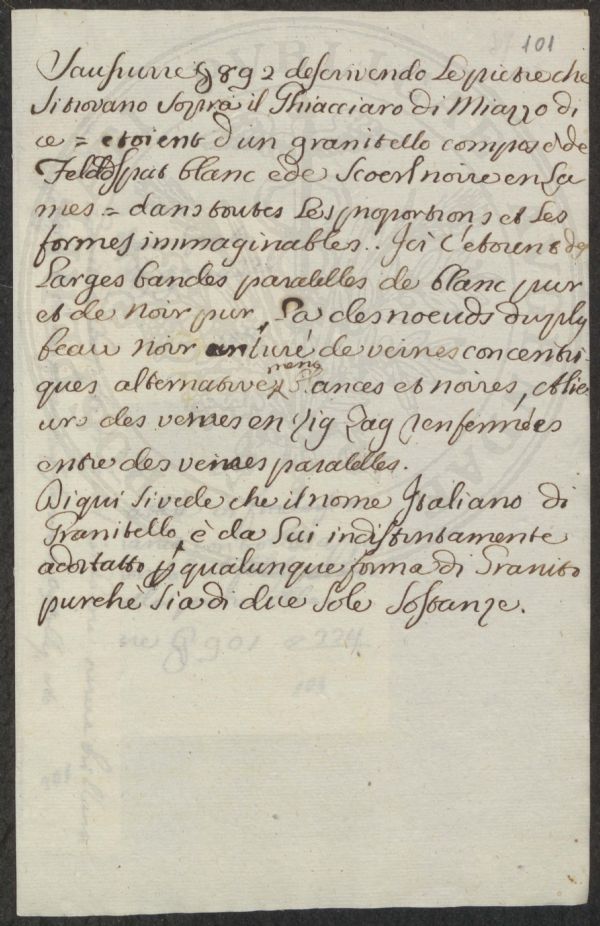 101
Saussurre § 892 descrivendo le pietre che
si trovano sopra il Ghiacciaro di Miazzo di
ce = etoient d'un granitello composé de
Feldspat blanc e de Scoerl noire en la
mes = dans toutes les proportions et les
formes immaginables.. Ici c'etoient des
larges bandes paralelles de blanc pur
et de noir pur, La des noeuds du plus
beau noir de veines concentri-
ques alternative blances et noires, Allie
urs des veines en zig zag renfermées
entre des veines paralelles.
Di qui si vede che il nome Italiano di
Granitello, è da lui indistintamente
adottatto p qualunque forma di Granito
purchè sia di due sole sostanze.